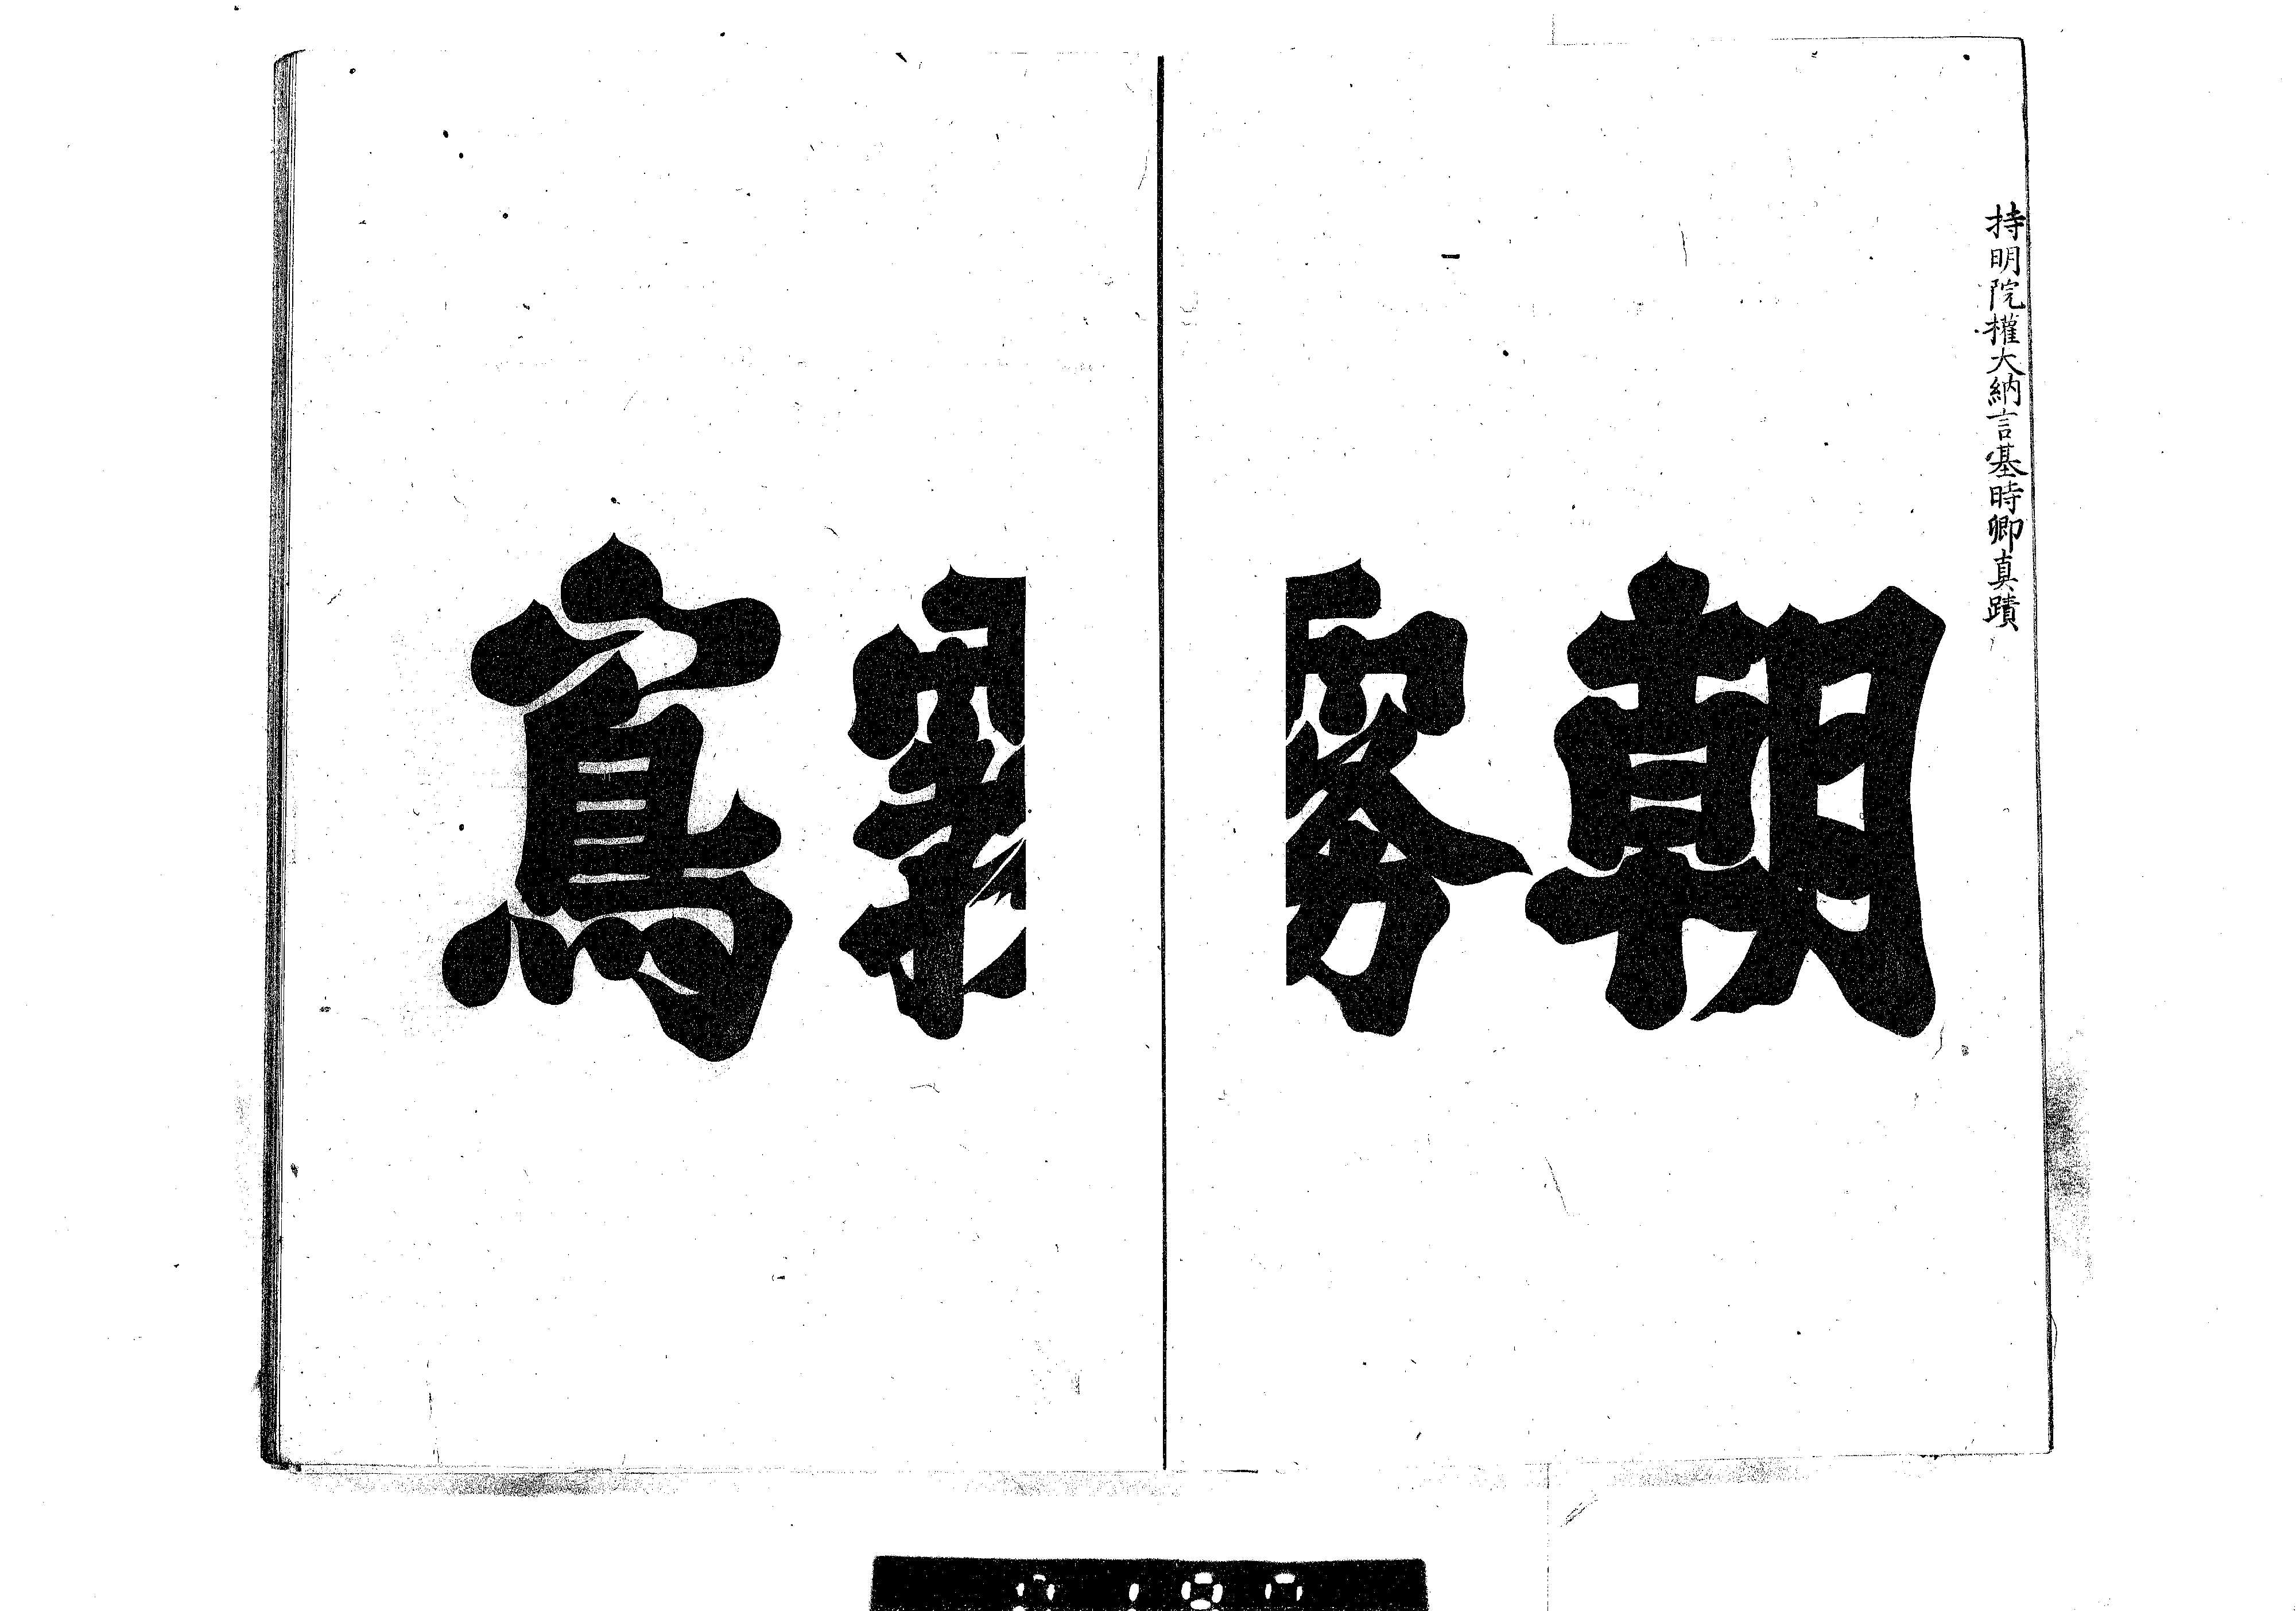 持明院權大納言基時卿真蹟
朝霧